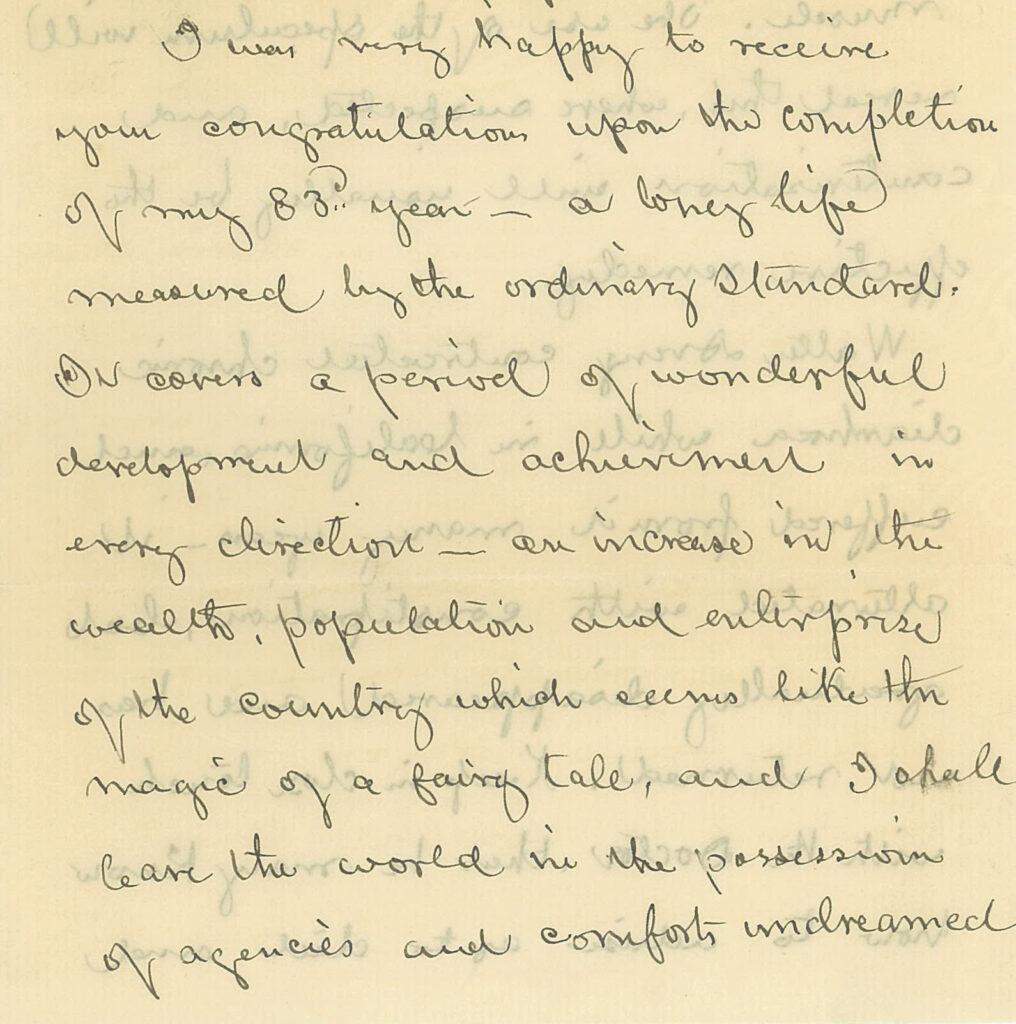 I was very happy to receive
your congratulations upon the completion
of my 83d year — a long life
measured by the ordinary standard.
It covers a period of wonderful
development and achievement in
every direction — an increase in the
wealth, population and enterprise
of the country which seems like the
magic of a fairy tale, and I shall
leave the world in the possession
of agencies and comforts undreamed